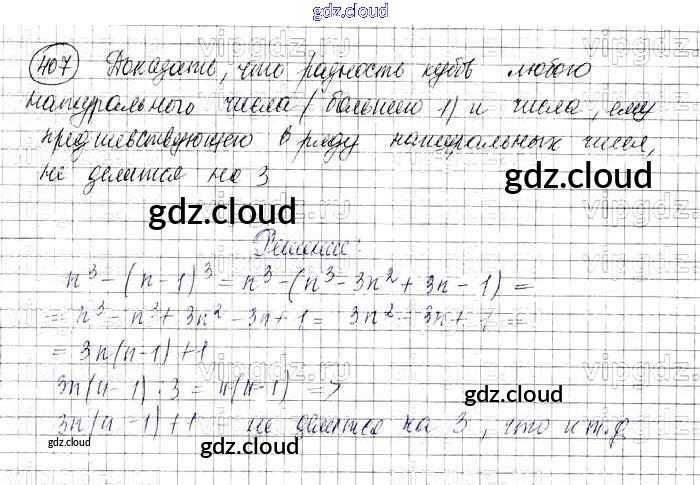 gdz.cloud
407 Доказать, что разность кубов любого
натурального числа (большего 1) и числа, ему
предшевствующего в ряду натуральных чисел,
не делится на 3
gdz.cloud
gdz.cloud
Решение:
n³ - (n - 1)³ = n³ - (n³ - 3n² + 3n - 1) =
= n³ - n³ + 3n² - 3n + 1 = 3n² - 3n + 1 =
= 3n(n-1) + 1
3n(n-1) : 3 = n(n-1) =>
gdz.cloud
3n(n-1)+1 не делится на 3, что и т.д.
gdz.cloud
gdz.cloud
gdz.cloud